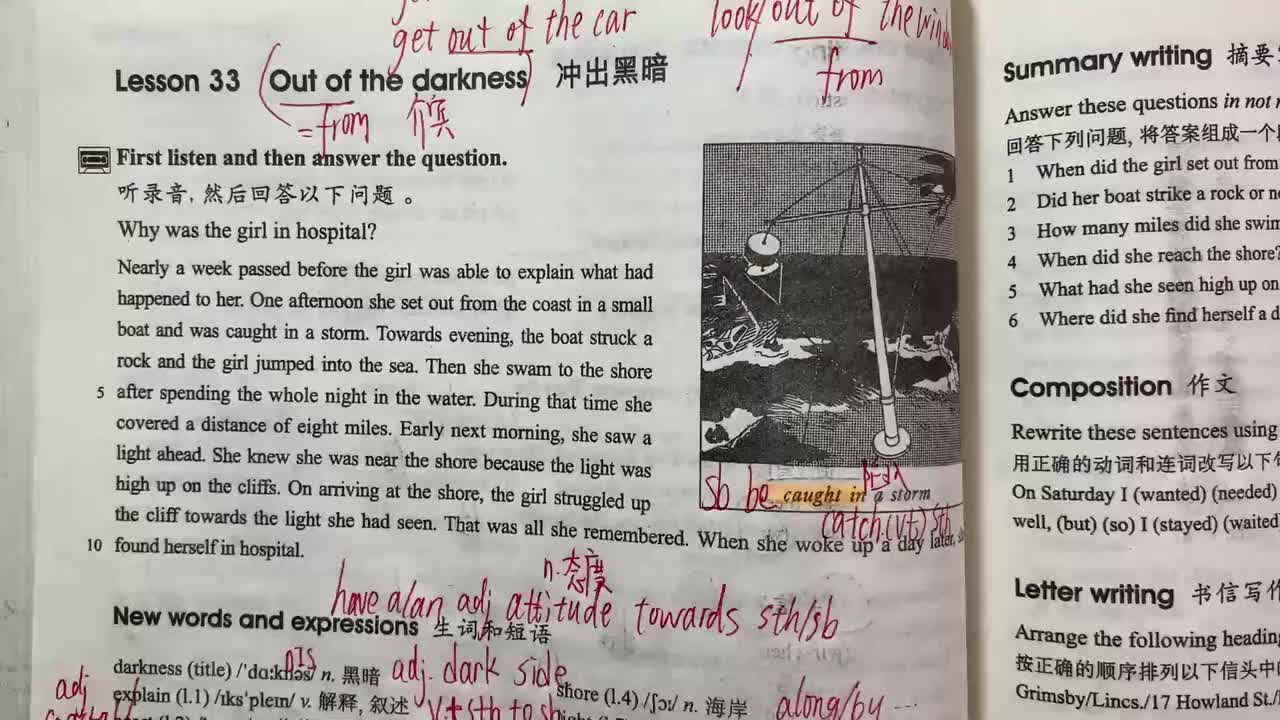 get out of the car
look out of the
from
Lesson 33 Out of the darkness 冲出黑暗
= from 介宾
First listen and then answer the question.
听录音，然后回答以下问题。
Why was the girl in hospital?
Nearly a week passed before the girl was able to explain what had
happened to her. One afternoon she set out from the coast in a small
boat and was caught in a storm. Towards evening, the boat struck a
rock and the girl jumped into the sea. Then she swam to the shore
5 after spending the whole night in the water. During that time she
covered a distance of eight miles. Early next morning, she saw a
light ahead. She knew she was near the shore because the light was
high up on the cliffs. On arriving at the shore, the girl struggled up
the cliff towards the light she had seen. That was all she remembered. When she woke up a day later,
10 found herself in hospital.
sb be caught in a storm
catch (vt) sth
n. 态度
have a/an adj attitude towards sth/sb
New words and expressions 生词和短语
darkness (title) /'dɑ:knəs/ n. 黑暗
adj. dark side
adj
explain (l.1) /ɪks'pleɪn/ v. 解释, 叙述
v + sth to
shore (l.4) /ʃɔ:/ n. 海岸
along/by ...
Summary writing 摘要
Answer these questions in not
回答下列问题, 将答案组成一个
1 When did the girl set out from
2 Did her boat strike a rock or
3 How many miles did she swim
4 When did she reach the shore?
5 What had she seen high up on
6 Where did she find herself a
Composition 作文
Rewrite these sentences using
用正确的动词和连词改写以下
On Saturday I (wanted) (needed)
well, (but) (so) I (stayed) (waited
Letter writing 书信写作
Arrange the following heading
按正确的顺序排列以下信头中
Grimsby/Lincs./17 Howland St./